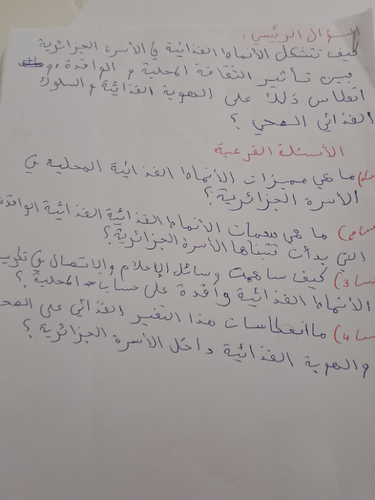 السؤال الرئيسي :
كيف تتشكل الأنماط الغذائية في الأسرة الجزائرية
بين تأثير الثقافة المحلية و الوافدة، و
انعكاس ذلك على الهوية الغذائية و السلوك
الغذائي الصحي ؟
الأسئلة الفرعية
س1) ما هي مميزات الأنماط الغذائية المحلية في
الأسرة الجزائرية ؟
س2) ما هي سمات الأنماط الغذائية الوافدة
التي بدأت تتبناها الأسرة الجزائرية ؟
س3) كيف ساهمت وسائل الإعلام والاتصال في
الأنماط الغذائية وافدة على حساب المحلية ؟
س4) ما انعكاسات هذا التغير الغذائي على الصحة
و الهوية الغذائية داخل الأسرة الجزائرية ؟